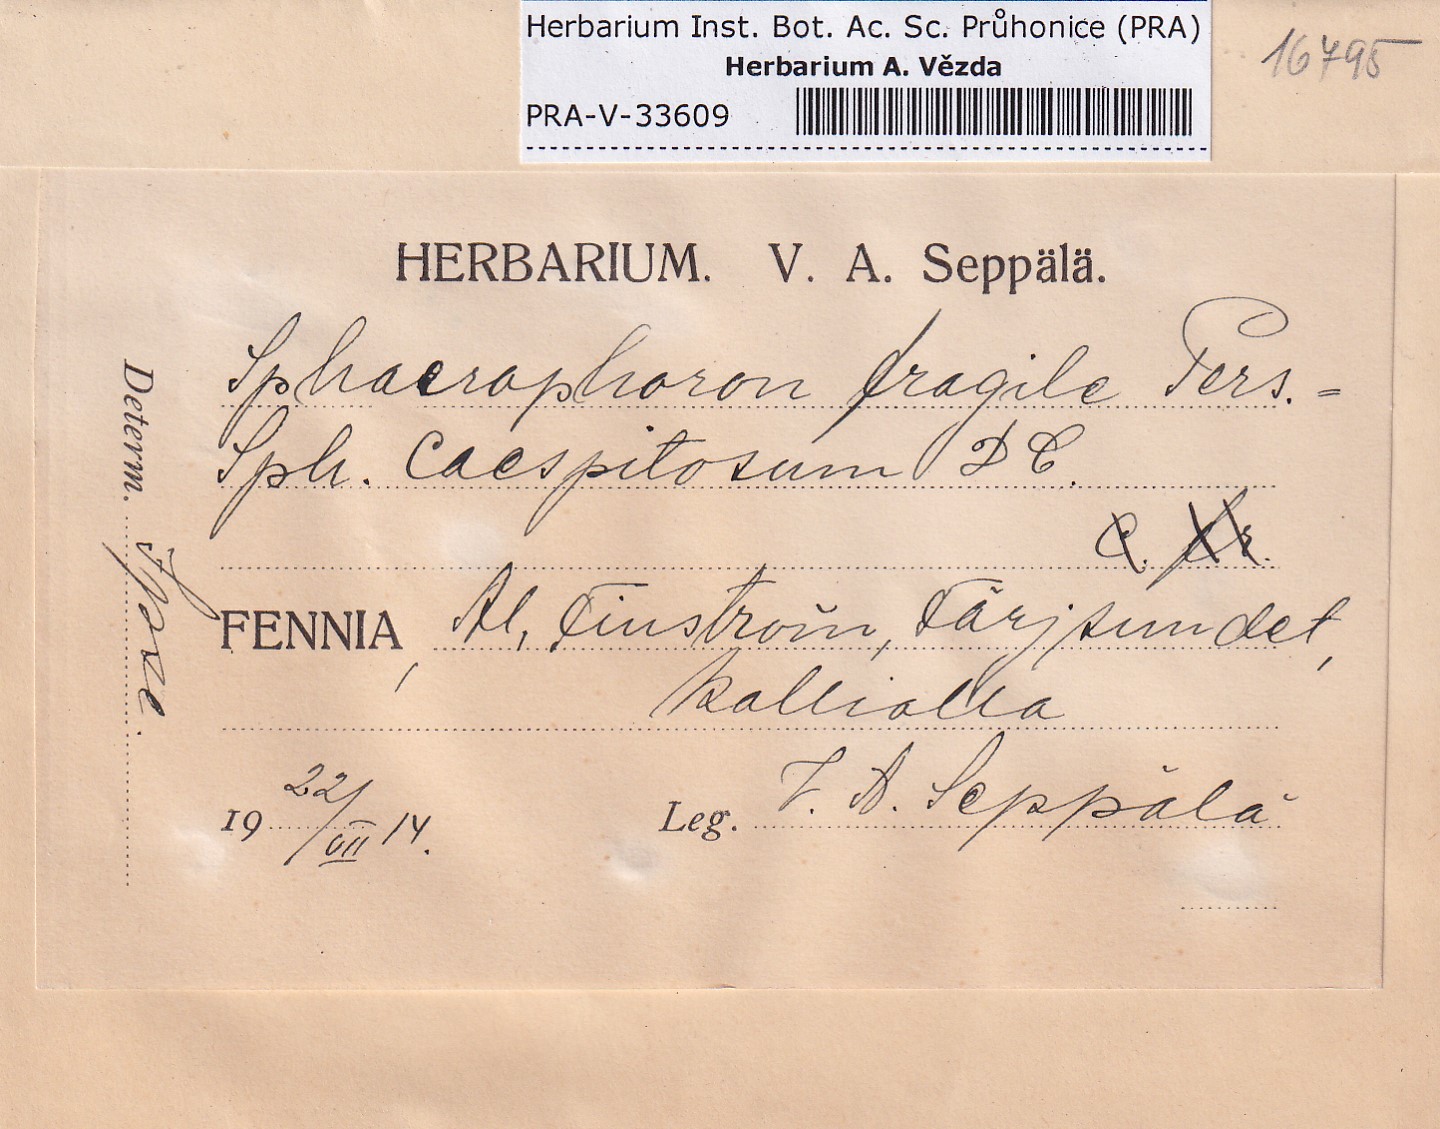 Herbarium Inst. Bot. Ac. Sc. Průhonice (PRA)
Herbarium A. Vězda
PRA-V-33609
16795
HERBARIUM. V. A. Seppälä.
Sphaerophoron fragile Pers. =
Sph. caespitosum DC.
FENNIA, Al, Finström, Färjsundet,
kalliolla
19 22/VII 14.
Leg. V. A. Seppälä
Determ.